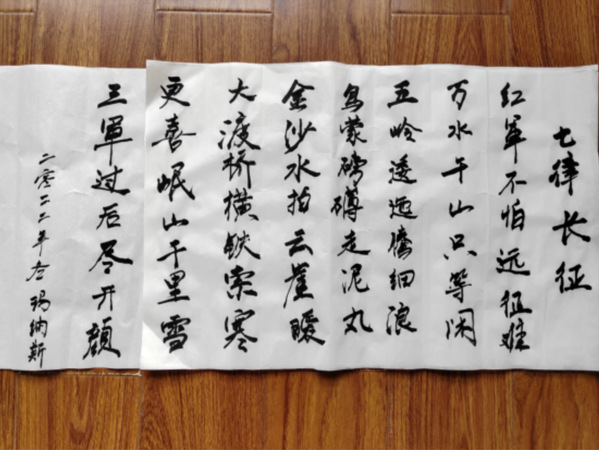 七律长征
红军不怕远征难
万水千山只等闲
五岭逶迤腾细浪
乌蒙磅礴走泥丸
金沙水拍云崖暖
大渡桥横铁索寒
更喜岷山千里雪
三軍过后尽开颜
二零二二年在玛纳斯